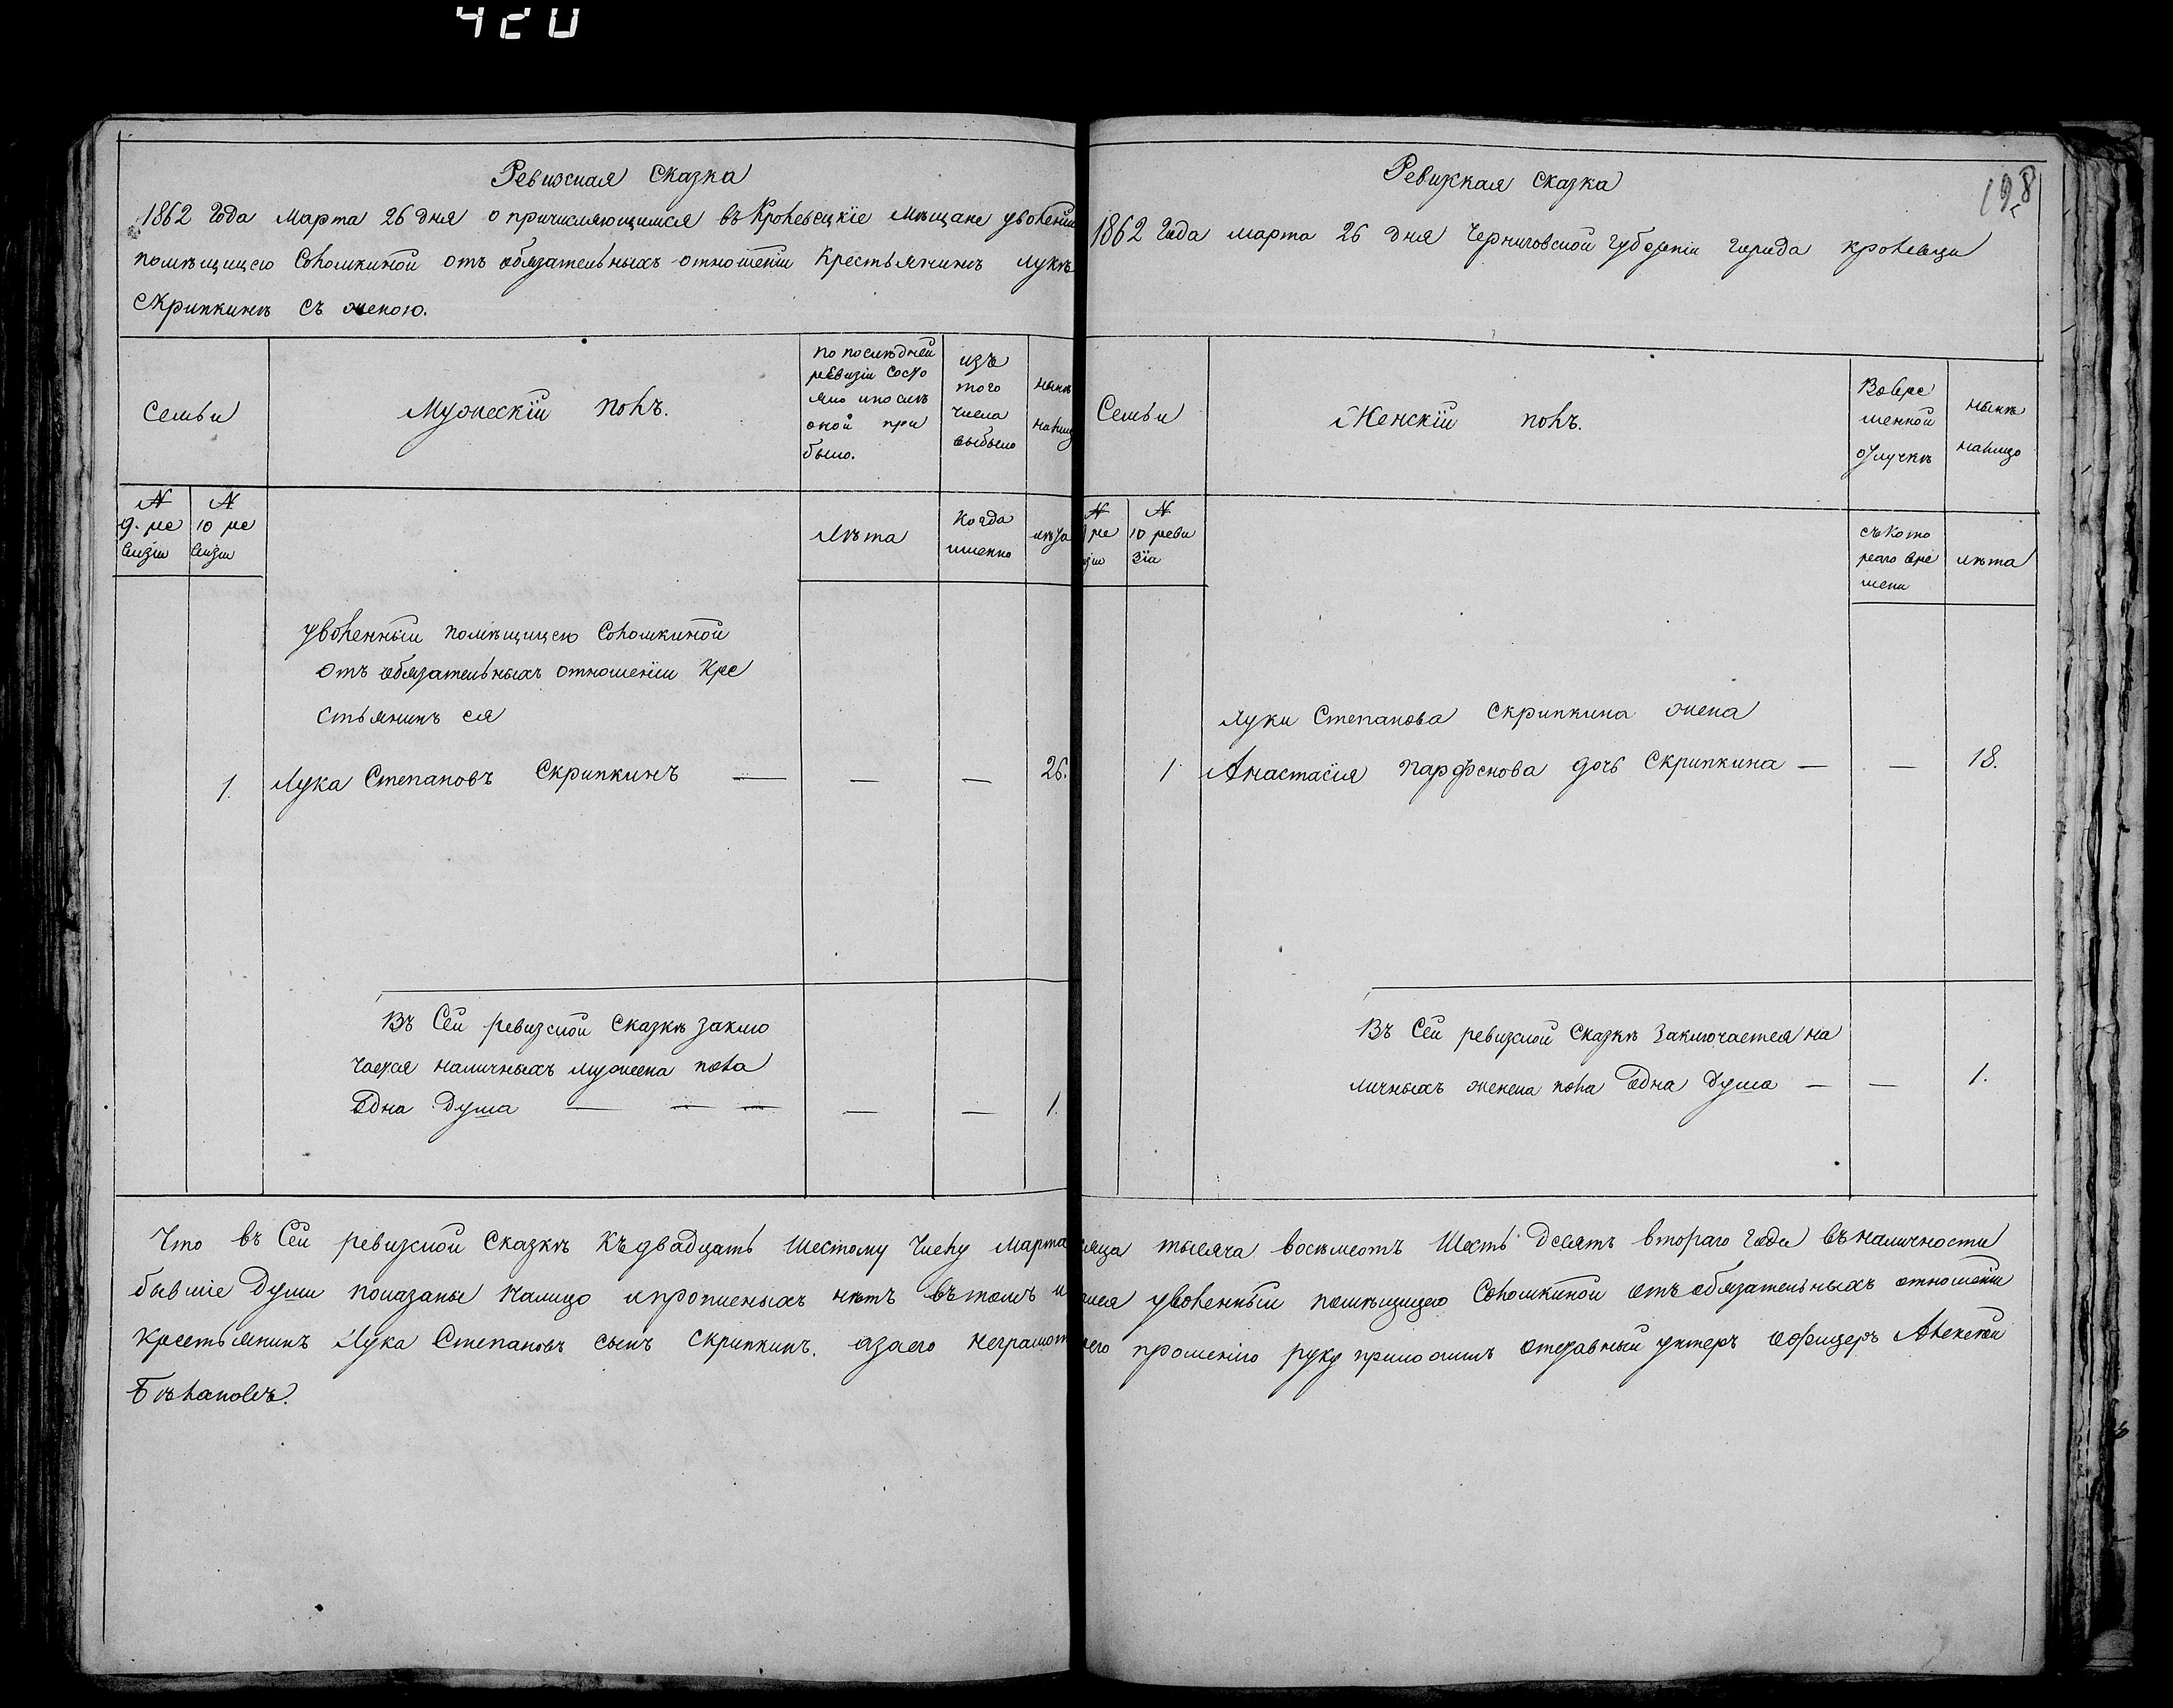 420
Ревизкая сказка
1862 года марта 26 дня о причисляющимся въ Кролевецкіе мѣщане уволеній
помѣщицею Соломкиной отъ обязательныхъ отношеніи крестьянинѣ Лукѣ
Скрипкинѣ съ женою.
Семьи
Мужескій полъ.
по последней
ревизіи состо
яло ипослѣ
оной при
было.
изъ
того
числа
выбыло
нынѣ
налиц
№
9. ре
визіи
№
10 ре
визіи
Лѣта
Когда
именно
лѣта
уволенный помѣщицею Соломкиной
отъ обязательныхъ отношеніи кре
стьянинъ ея
1. Лука Степановъ Скрипкинъ — — — 26.
Въ сей ревизской сказкѣ заклю
чается наличныхъ мужеска пола
одна душа — — — — — 1.
198
Ревизкая сказка
1862 года марта 26 дня Черниговской губерніи города Кролевца
Семьи
Женскій полъ.
Вовре
менной
отлучкѣ
нынѣ
налицо
№
ре
зіи
№
10 реви
зіи
съ кото
раго вре
мени
лѣта
Луки Степанова Скрипкина жена
1 Анастасія Парфенова дочь Скрипкина — — 18.
Въ сей ревизской сказкѣ заключается на
личныхъ женска пола одна душа — — 1.
Что въ сей ревизской сказкѣ къ двадцать шестому числу марта сяца тысяча восемсотъ шесть десятъ втораго года въ наличности
бывшіе души показаны налицо и прописныхъ нѣтъ въ томъ и уволенный помѣщицею Соломкиной отъ обязательныхъ отношеніи
крестьянинъ Лука Степановъ сынъ Скрипкинъ. а за его неграмот его прошенію руку приложилъ отставный унтеръ офицеръ Алексей
Бѣлановъ.